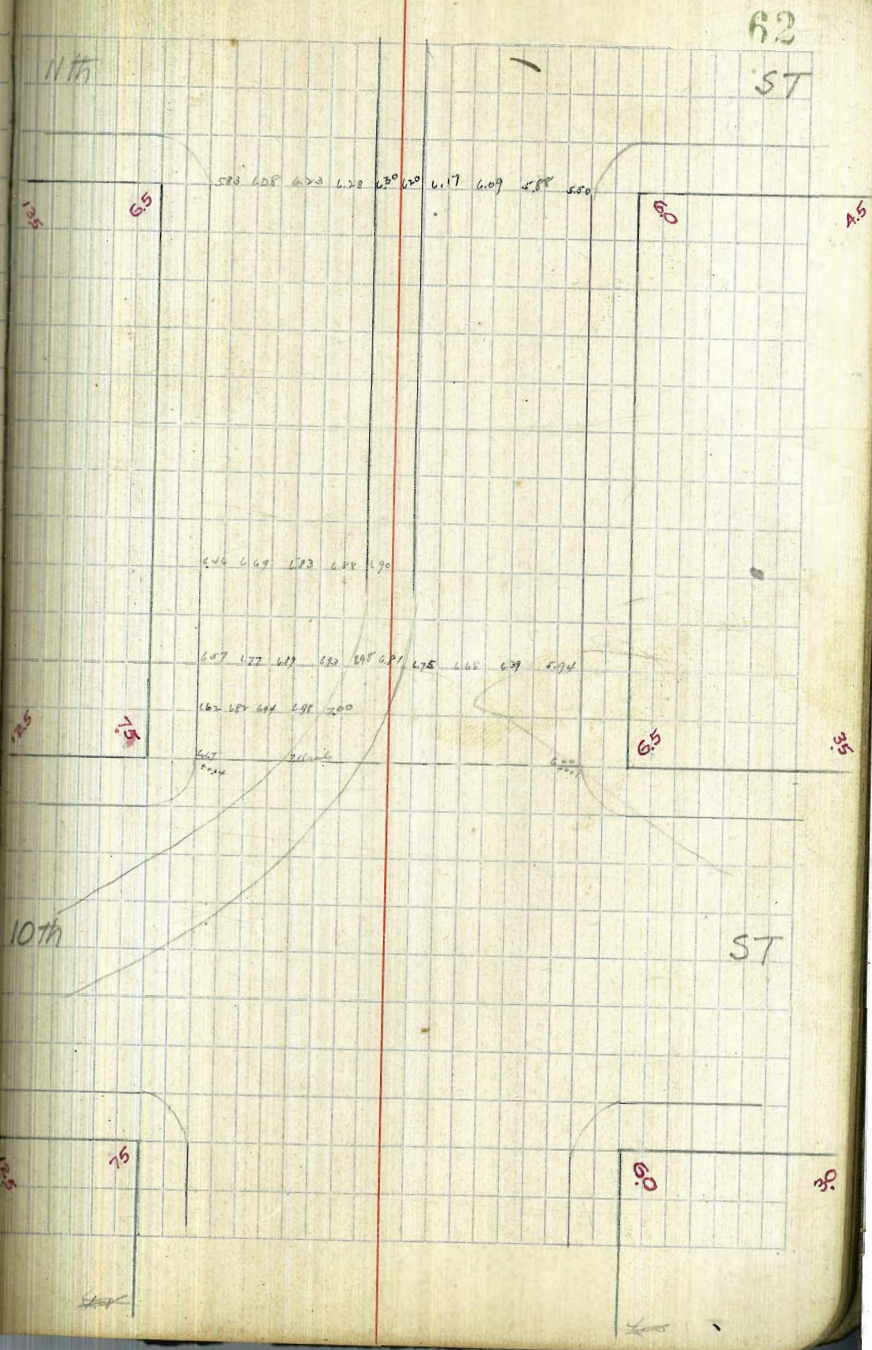 62
11th ST
5.83 6.08 6.23 6.28 6.30 6.20 6.17 6.09 5.88 5.50
13.5 6.5 6.0 4.5
6.46 6.69 6.83 6.88 6.90
6.57 6.77 6.89 6.93 6.95 6.81 6.75 6.65 6.39 5.94
6.62 6.82 6.94 6.98 7.00
12.5 7.5 6.5 3.5
6.67 6.00
10th ST
12.5 7.5 6.0 3.0